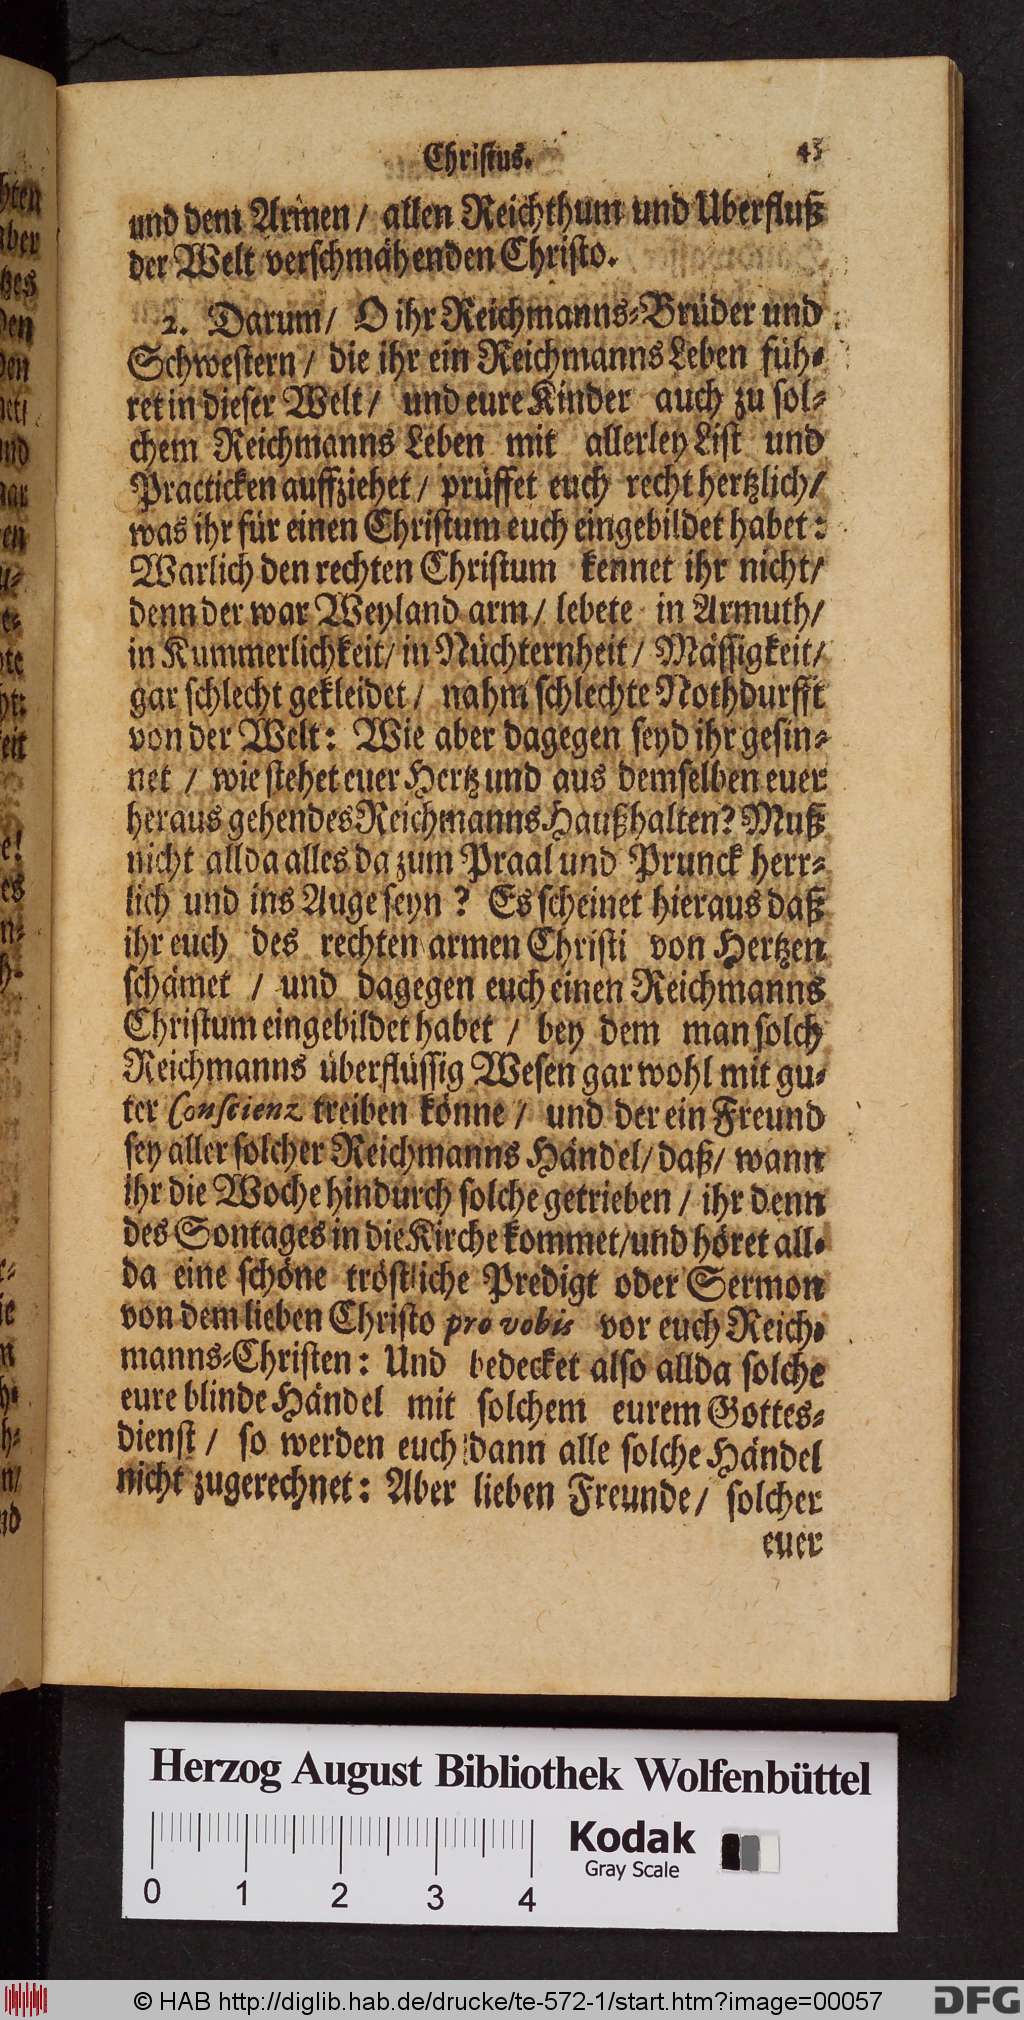 Christus. 45
und dem Armen / allen Reichthum und Uberfluß
der Welt verschmähenden Christo.
2. Darum / O ihr Reichmanns-Brüder und
Schwestern / die ihr ein Reichmanns Leben füh-
ret in dieser Welt / und eure Kinder auch zu sol-
chem Reichmanns Leben mit allerley List und
Practicken auffziehet / prüffet euch recht hertzlich /
was ihr für einen Christum euch eingebildet habet:
Warlich den rechten Christum kennet ihr nicht /
denn der war Weyland arm / lebete in Armuth /
in Kummerlichkeit / in Nüchternheit / Mässigkeit /
gar schlecht gekleidet / nahm schlechte Nothdurfft
von der Welt: Wie aber dagegen seyd ihr gesin-
net / wie stehet euer Hertz und aus demselben euer
heraus gehendes Reichmanns Haußhalten? Muß
nicht allda alles da zum Praal und Prunck herr-
lich und ins Auge seyn? Es scheinet hieraus daß
ihr euch des rechten armen Christi von Hertzen
schämet / und dagegen euch einen Reichmanns
Christum eingebildet habet / bey dem man solch
Reichmanns überflüssig Wesen gar wohl mit gu-
ter Conscienz treiben könne / und der ein Freund
sey aller solcher Reichmanns Händel / daß / wann
ihr die Woche hindurch solche getrieben / ihr denn
des Sontages in die Kirche kommet / und höret all-
da eine schöne tröstliche Predigt oder Sermon
von dem lieben Christo pro vobis vor euch Reich-
manns-Christen: Und bedecket also allda solche
eure blinde Händel mit solchem eurem Gottes-
dienst / so werden euch dann alle solche Händel
nicht zugerechnet: Aber lieben Freunde / solcher
euer
Herzog August Bibliothek Wolfenbüttel
Kodak
Gray Scale
0 1 2 3 4
© HAB http://diglib.hab.de/drucke/te-572-1/start.htm?image=00057
DFG